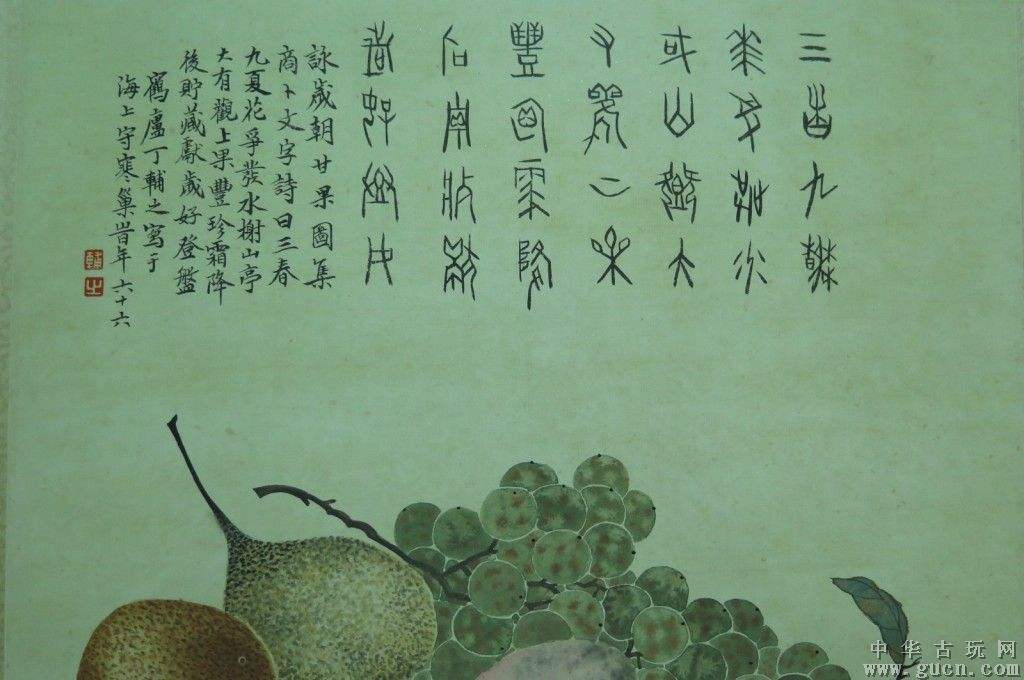 三春九夏
花爭發水
榭山亭大
有觀上果
豐珍霜降
後貯藏獻
歲好登盤
詠歲朝甘果圖集
商卜文字詩曰三春
九夏花爭發水榭山亭
大有觀上果豐珍霜降
後貯藏獻歲好登盤
鶴廬丁輔之寫于
海上守寒巢旹年六十六
輔
之
中华古玩网
www.gucn.com